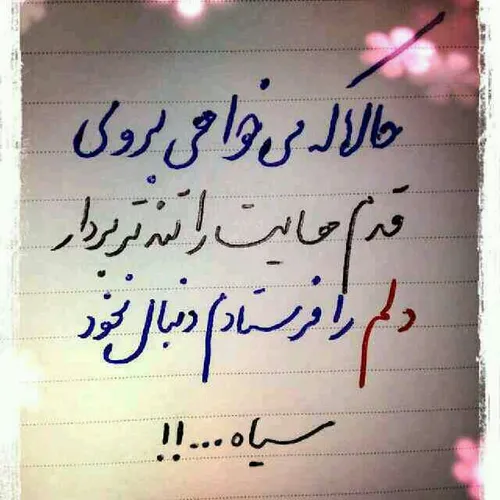 حالا که می خواهی بروی
قدم هایت را تندتر بردار
دلم را فرستادم دنبال نخود
سیاه...!!